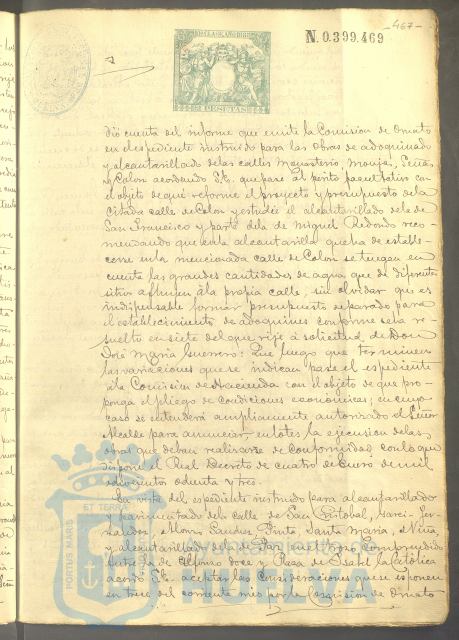 467
N.0.399.469
dió cuenta del informe que emite la Comision de Ornato
en el espediente instruido para las obras de adoquinado
y alcantarillado de las calles Monasterio, Monjas, Señas
y Colon acordando S.E. que pase al perito facultativo con
el objeto de que reforme el proyecto y presupuesto de la
citada calle de Colon y estudie el alcantarillado de la de
San Francisco y parte de la de Miguel Redondo reco-
mendando que en la alcantarilla que ha de estable-
cerse en la mencionada calle de Colon se tengan en
cuenta las grandes cantidades de agua que de diferentes
sitios afluyen á la propia calle, sin olvidar que es
indispensable formar presupuesto separado para
el establecimiento de adoquines conforme se ha re-
suelto en siete del que rije á solicitud de Don
José Maria Guerrero: Que luego que terminen
las variaciones que se indican pase el espediente
á la Comision de Hacienda con el objeto de que pro-
ponga el pliego de condiciones económicas; en cuyo
caso se entenderá ampliamente autorizado el Señor
Alcalde para anunciar, en lotes la ejecusion de las
obras que deban realizarse de conformidad con lo que
dispone el Real Decreto de cuatro de Enero de mil
ochocientos ochenta y tres.
La vista del espediente instruido para alcantarillado
y pavimentado de la calle de San Cristobal, Garci-Fer-
nandez, Alonso Sanchez, Pinta, Santa Maria, Niña,
y alcantarillado de la de Paz en el trozo comprendido
entre la de Alfonso doce y Plaza de Isabel la Católica
acordó S.E. aceptar las consideraciones que se esponen
en trece del corriente mes por la Comision de Ornato
ET TERRAE
PORTUS MARIS
Ayuntamiento de
HUELVA